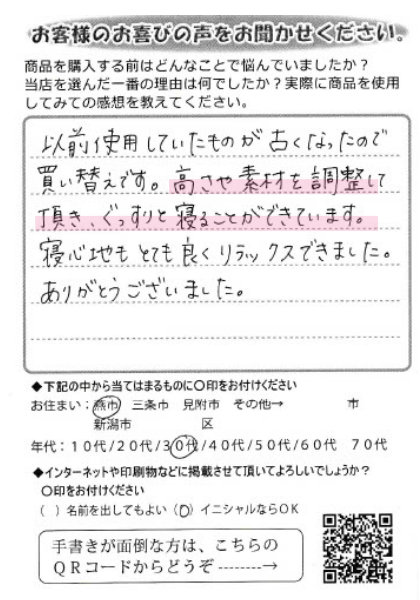 お客様のお喜びの声をお聞かせください。
商品を購入する前はどんなことで悩んでいましたか？
当店を選んだ一番の理由は何でしたか？実際に商品を使用
してみての感想を教えてください。
以前使用していたものが古くなったので
買い替えです。高さや素材を調整して
頂き、ぐっすりと寝ることができています。
寝心地もとても良くリラックスできました。
ありがとうございました。
◆下記の中から当てはまるものに〇印をお付けください
お住まい：燕市　三条市　見附市　その他→　　　　市
新潟市　　　　　区
年代：１０代/２０代/３０代/４０代/５０代/６０代　７０代
◆インターネットや印刷物などに掲載させて頂いてよろしいでしょうか？
〇印をお付けください
（　）名前を出してもよい（○）イニシャルならＯＫ
手書きが面倒な方は、こちらの
ＱＲコードからどうぞ --------→